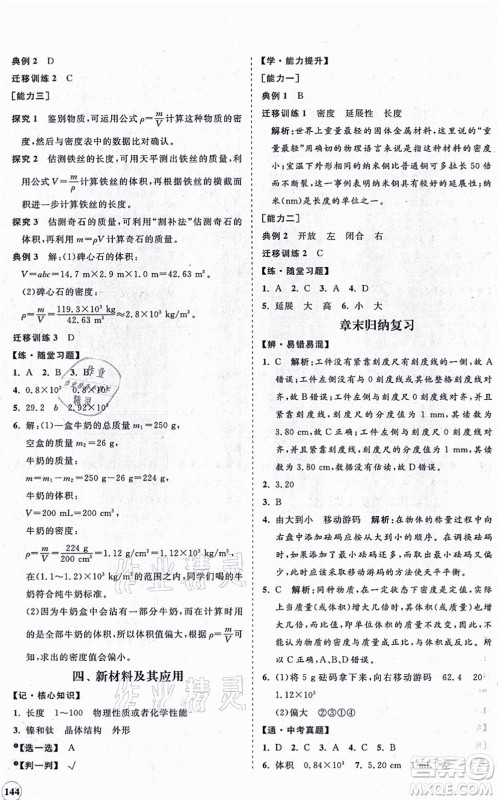 典例2 D
迁移训练2 C
[能力三]
探究1 鉴别物质,可运用公式ρ=m/V计算这种物质的密度,然后与密度表中的数据作比较。
探究2 估测铁丝的长度,可用天平测出铁丝的质量,利用公式V=m/ρ计算铁丝的体积,再除以铁丝的横截面积,便可以计算铁丝的长度。
探究3 估测奇石的质量,可用“割补法”估测奇石的体积,再运用m=ρV计算奇石的质量。
典例3 解:(1)碑心石的体积:
V=abc=14.7 m×2.9 m×1 m=42.63 m³。
(2)碑心石的密度:
ρ=m/V=119.4×10³ kg/42.63 m³≈2.8×10³ kg/m³。
迁移训练3 D
【练·随堂习题】
1. A 2. B 3. B
4. 0.8×10³
5. 29.2 b 2.92×10³
6. 解:(1)一盒牛奶的总质量m₁=250 g,
空盒的质量m₂=26 g,
牛奶的质量:
m=m₁-m₂=250 g-26 g=224 g,
牛奶的体积:
V=200 mL=200 cm³,
牛奶的密度:
ρ=m/V=224 g/200 cm³=1.12 g/cm³=1.12×10³ kg/m³。
因在标准密度范围之内,所以同学们喝的牛奶符合纯牛奶标准。
(2)因为牛奶盒中会沾有一部分牛奶,故用上述方法计算时,牛奶的质量偏小,体积偏大,由公式计算出来的密度偏小。
四、新材料及其应用
【记·核心知识】
1. 长度 1~100 物理性质或者化学性能
2. 镍和钛 晶体结构 外形
●【选一选】
●【判一判】√
144
【学·能力提升】
[能力一]
典例1 D
迁移训练1 密度 延展性 长度
解析:世界上重量最轻的固体金属材料,这里的“重量最轻”用准确的物理语言来表述应该是“密度最小”;室温下外形相同的纳米铜比普通铜可多拉长50倍而不断裂,这表明纳米铜具有较好的延展性;纳米(nm)是长度的单位。
[能力二]
典例2 开放 左 闭合 右
迁移训练2 C
【练·随堂习题】
1. A 2. D 3. A 4. C
5. 延展 大 高 6. 小 大
章末归纳复习
【辨·易错易混】
1. C 解析:被测物体没有紧靠刻度尺的刻度线,A错误;因为工件没有紧靠刻度尺的刻度线,左边没有与0刻度线对齐,B错误;工件左边与0刻度线对齐,紧靠刻度线,刻度尺的分度值为1 mm,读作3.80 cm,C正确;工件左边没有与0刻度线对齐,刻度尺的分度值为1 mm,估读也错误,故D错误。
2. 3.20
3. B
4. 由大到小 移动游码 解析:在物体的称量过程中向右盘中添加砝码应按由大到小的顺序,当最小砝码太重时,应退下最小砝码,移动游码使天平平衡;若不用最小砝码,应移动游码使天平衡。
5. C 解析:同种物质,在物态一定时,它的质量(或体积)增大几倍时,其体积(或质量)也增大几倍,质量与体积的比值不变,即密度不变,故A、B、D错误,C正确。
6. (1)放在标尺左端零刻度处,向右移动游码 62.4 20 3.12×10³
(2)偏大 ②③①④
【通·中考真题】
1. D 2. D 3. C 4. C 5. B
6. 体积 0.84×10³ 7. 5.20 1 mL